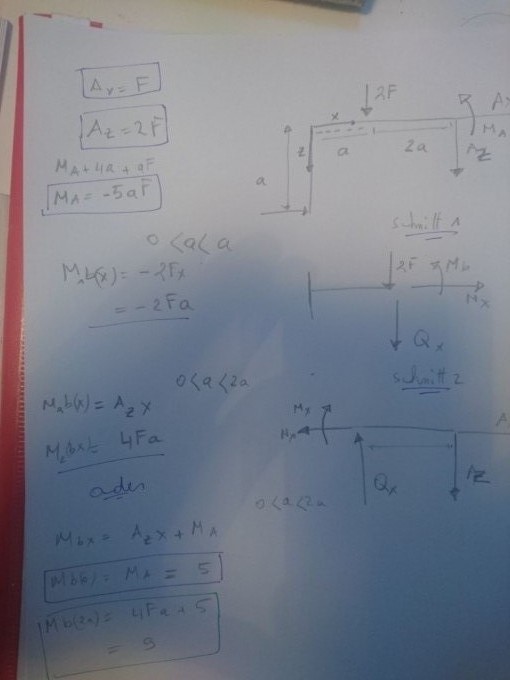 Aᵥ = F
A_z = 2F
M_A + 4a + aF
M_A = -5aF
2F
x
A
M_A
A_z
z
a
2a
a
schnitt 1
0 < a < a
M₁b(x) = -2Fx
= -2Fa
2F
M_b
N_x
Q_x
schnitt 2
0 < a < 2a
M₁b(x) = A_z x
M₂(bx) = 4Fa
oder
M_x
N_x
A
Q_x
A_z
0 < a < 2a
M_bx = A_z x + M_A
M_A = 5
Mb(2a) = 4Fa + 5
= 9